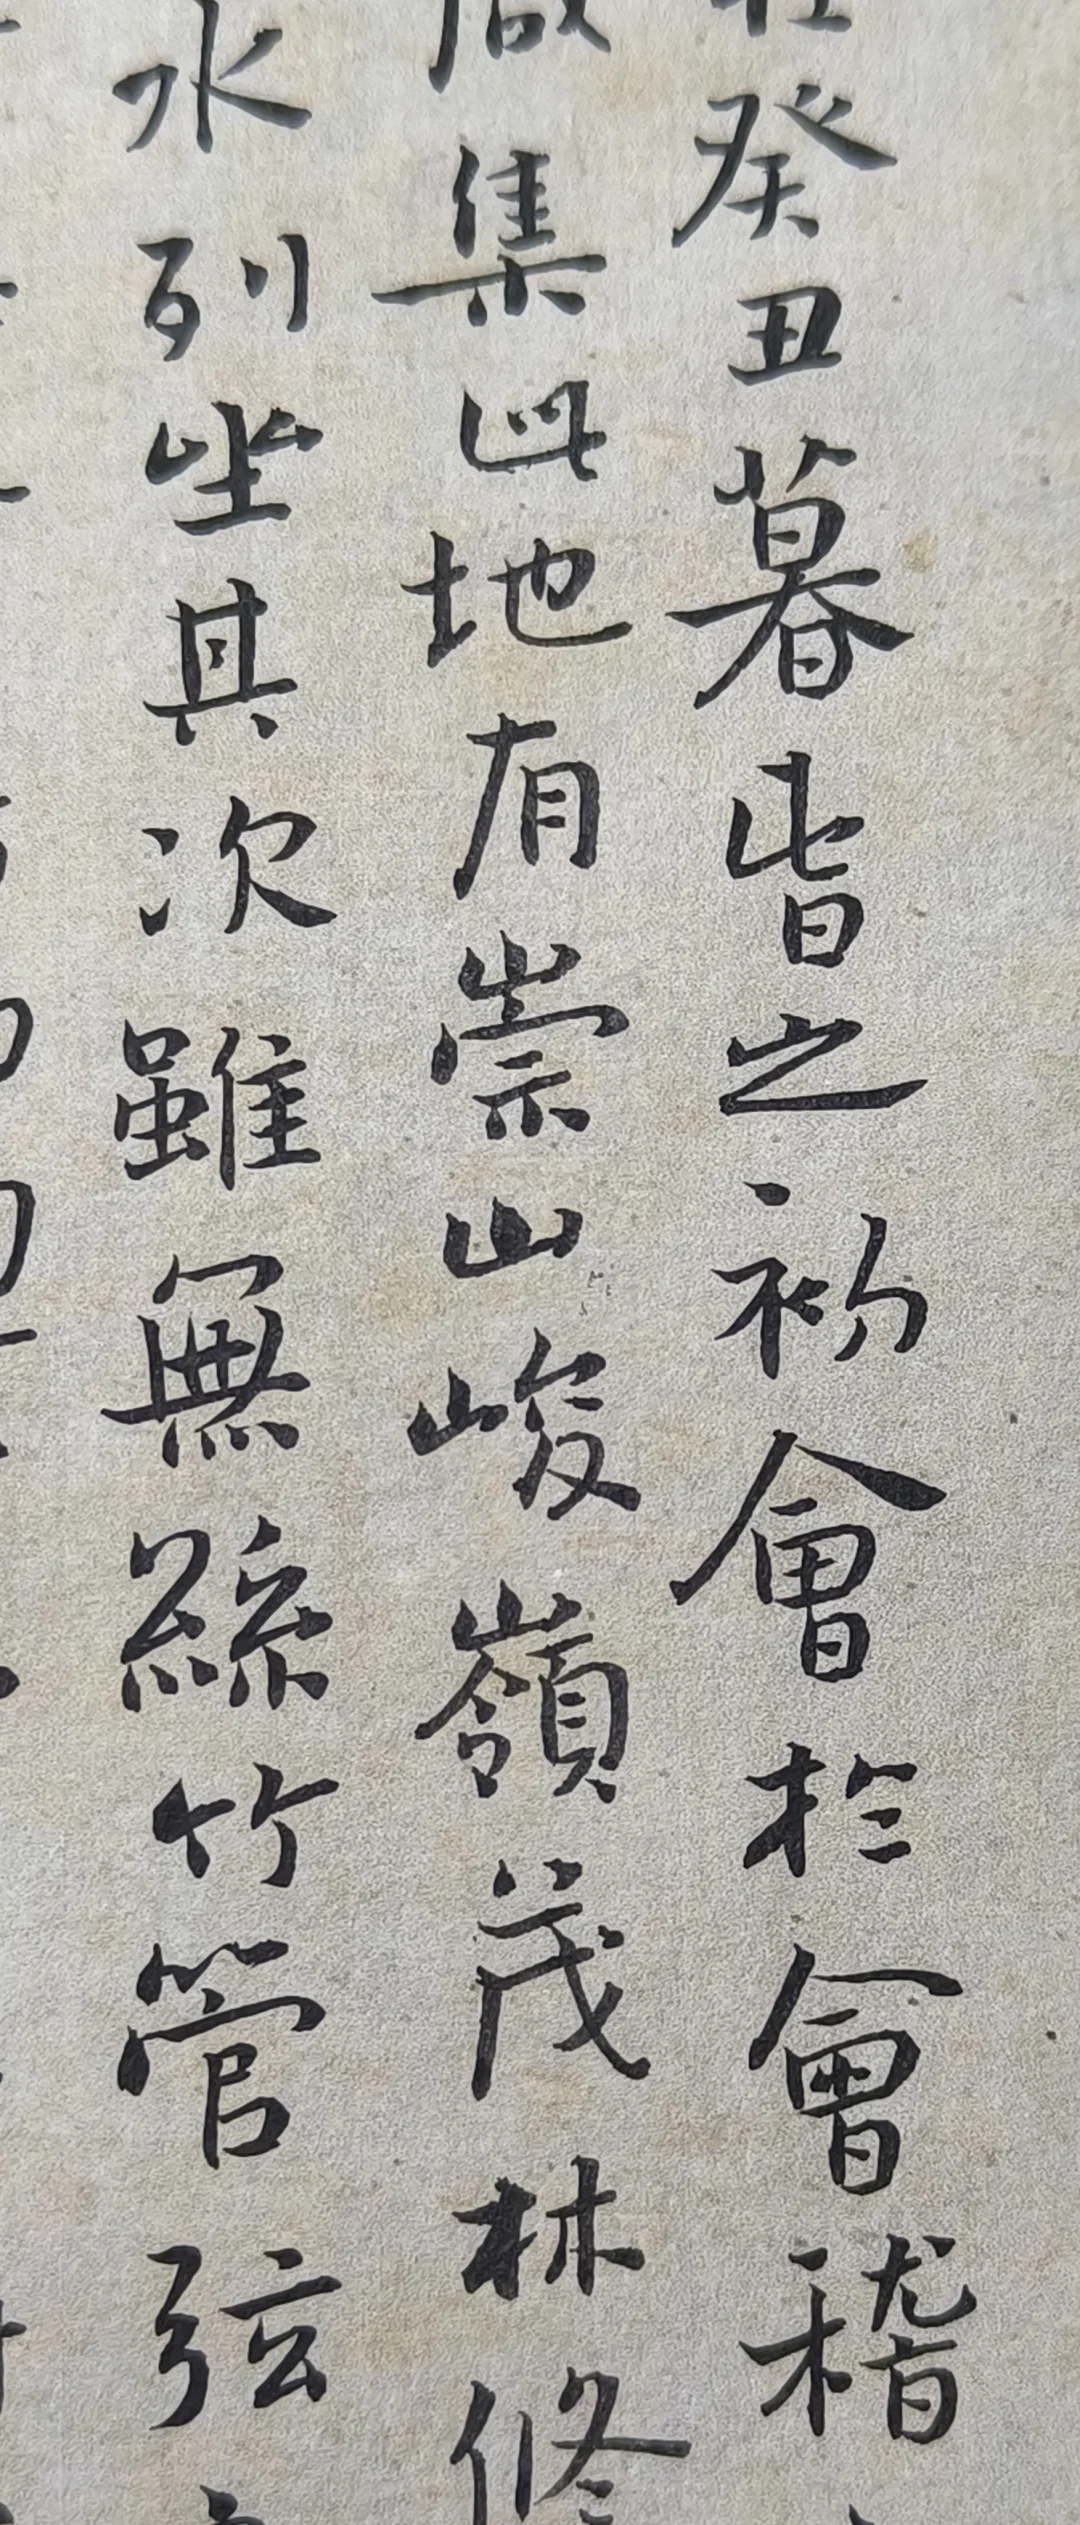 癸丑暮旾之初會於會稽
咸集此地有崇山峻嶺茂林修
水列坐其次雖無絲竹管弦